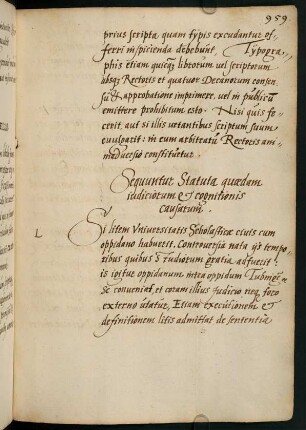 959
prius scripta, quam typis excudantur, of-
ferri inspicienda debebunt, Typogra-
phis etiam quicq; librorum uel scriptorum
absq; Rectoris et quatuor Decanorum consen-
su & approbatione imprimere, uel in publicu
emittere prohibitum esto. Nisi quis fe-
cerit, aut si illis uetantibus scriptum suum
euulgarit: in eum arbitratu Rectoris ani-
maduersio constituetur.
Sequuntur Statuta quædam
iudiciorum & cognitionis
causarum.
Si litem Vniuersitatis Scholasticæ ciuis cum
oppidano habuerit, Controuersia nata ijs tem-
poribus quibus studiorum gratia adfuerit:
is igitur oppidanum intra oppidum Tubing
se conueniat, et coram illius Iudicio neq; foro
externo utatur, Etiam executionem &
definitionem litis admittat de sententia